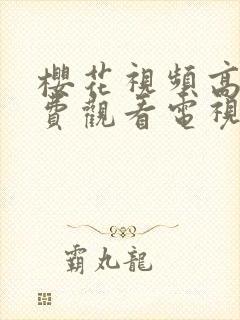 櫻花視頻高
費觀看電視
霸丸龍